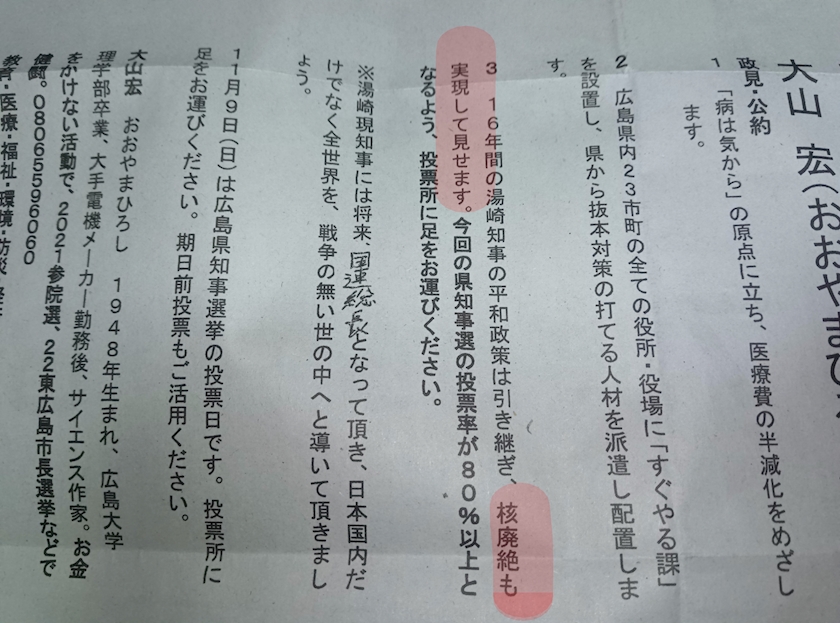 大山 宏(おおやまひ
政見・公約
1 「病は気から」の原点に立ち、医療費の半減化をめざし
ます。
2 広島県内23市町の全ての役所・役場に「すぐやる課」
を設置し、県から抜本対策の打てる人材を派遣し配置しま
す。
3 16年間の湯崎知事の平和政策は引き継ぎ、核廃絶も
実現して見せます。今回の県知事選の投票率が80%以上と
なるよう、投票所に足をお運びください。
※湯崎現知事には将来、国連総長となって頂き、日本国内だ
けでなく全世界を、戦争の無い世の中へと導いて頂きまし
ょう。
11月9日(日)は広島県知事選挙の投票日です。投票所に
足をお運びください。期日前投票もご活用ください。
大山宏 おおやまひろし 1948年生まれ、広島大学
理学部卒業、大手電機メーカー勤務後、サイエンス作家。お金
をかけない活動で、2021参院選、22東広島市長選挙などで
健闘。08065596060
教育・医療・福祉・環境・防災